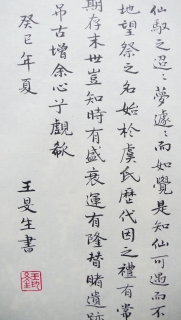 仙馭之迢〻夢遽〻而如覺是知仙可遇而不
地望祭之名始於虞氏歷代因之禮有常
期存末世豈知時有盛衰運有隆替睹遺跡
吊古增余心于
癸巳年夏
王旻生書